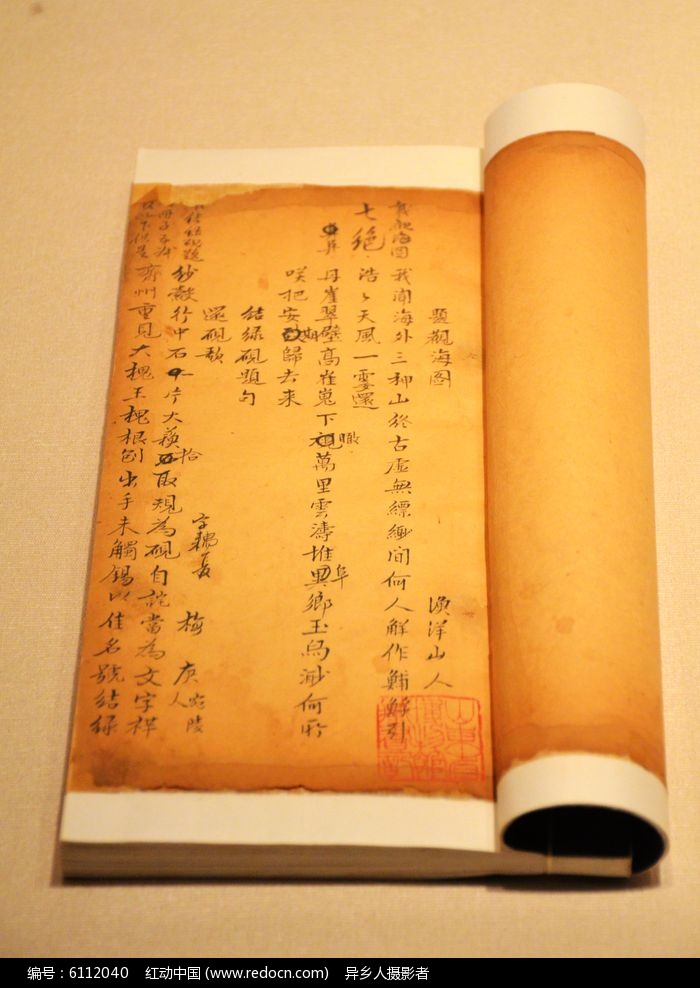 題觀海圖 漁洋山人
我聞海外三神山終古虛無縹緲間何人解作
七絕 浩々天風一雯還
丹崖翠壁高崔嵬下視瞰萬里雲濤堆異阜鄉玉烏渺何所
咲把安期歸去來
結綠硯題句
還硯歌
字聖俞 梅 庚 宛陵人
紗縠行中石一片大蘇拾取規為硯自詫當為文字祥
齊州重見大槐王槐根刨出手未觸錫以佳名號結綠
编号:6112040 红动中国 (www.redocn.com) 异乡人摄影者